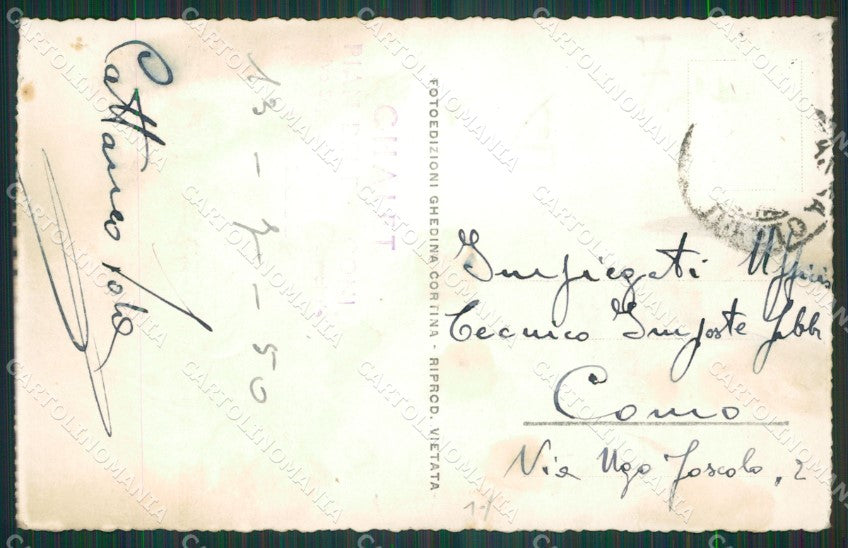 Cattaneo
13 - 7 - 50
CHALET
FOTOEDIZIONI GHEDINA CORTINA - RIPROD. VIETATA
Impiegati Ufficio
Tecnico Imposte Fabbr
Como
Via Ugo Foscolo, 2
CARTOLINOMANIA